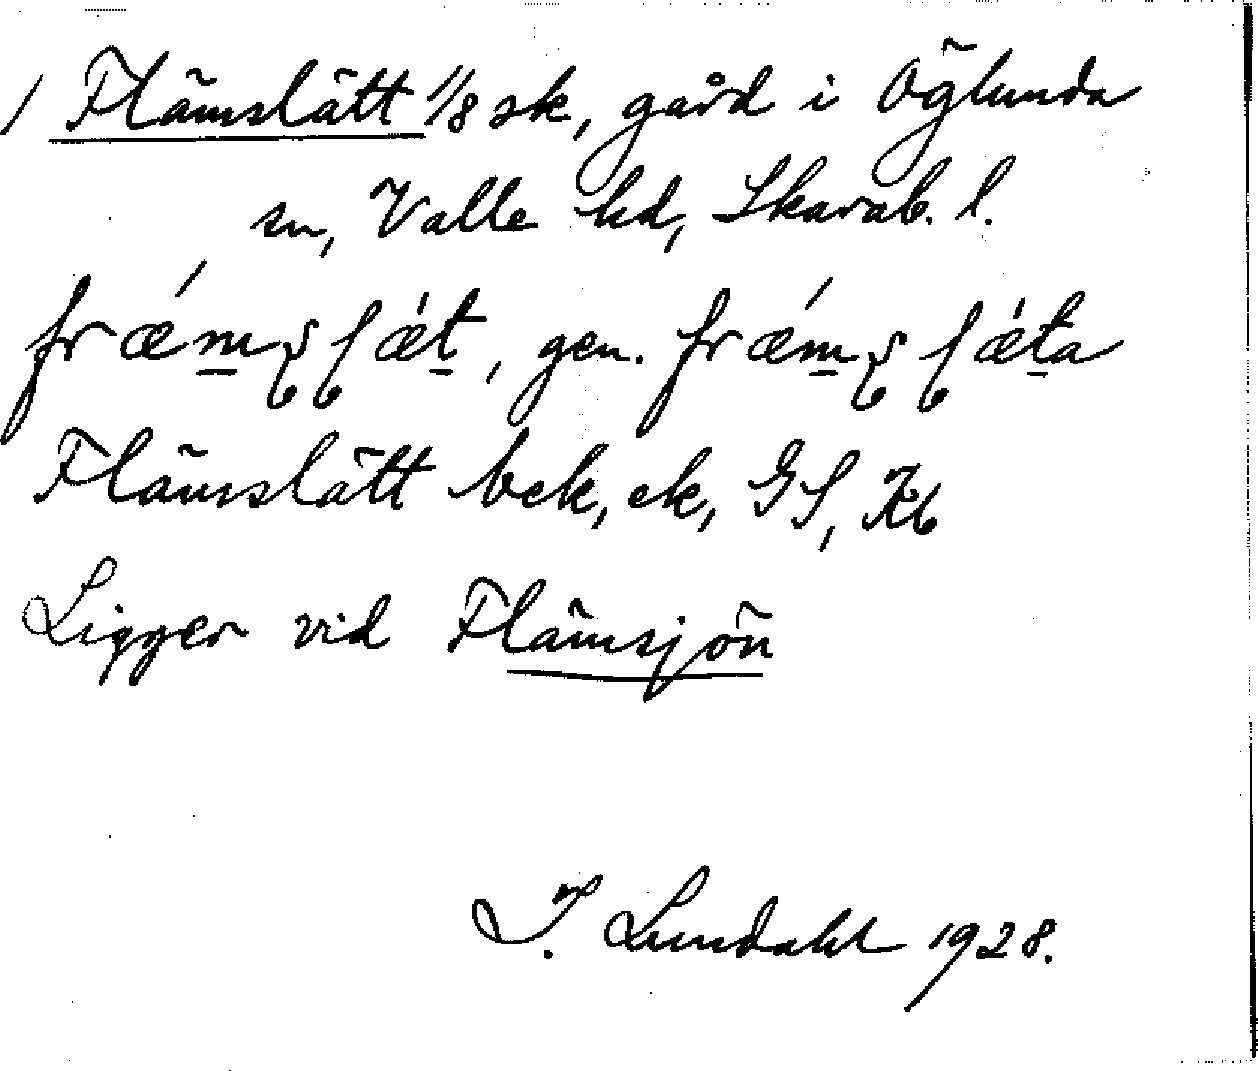 / Flämslätt 1/8 sk, gård i Öglunda
sn, Valle hd, Skarab. l.
gen.
Flämslätt bek, ek, GS, Kb
Ligger vid Flämsjön
I. Lundahl 1928.